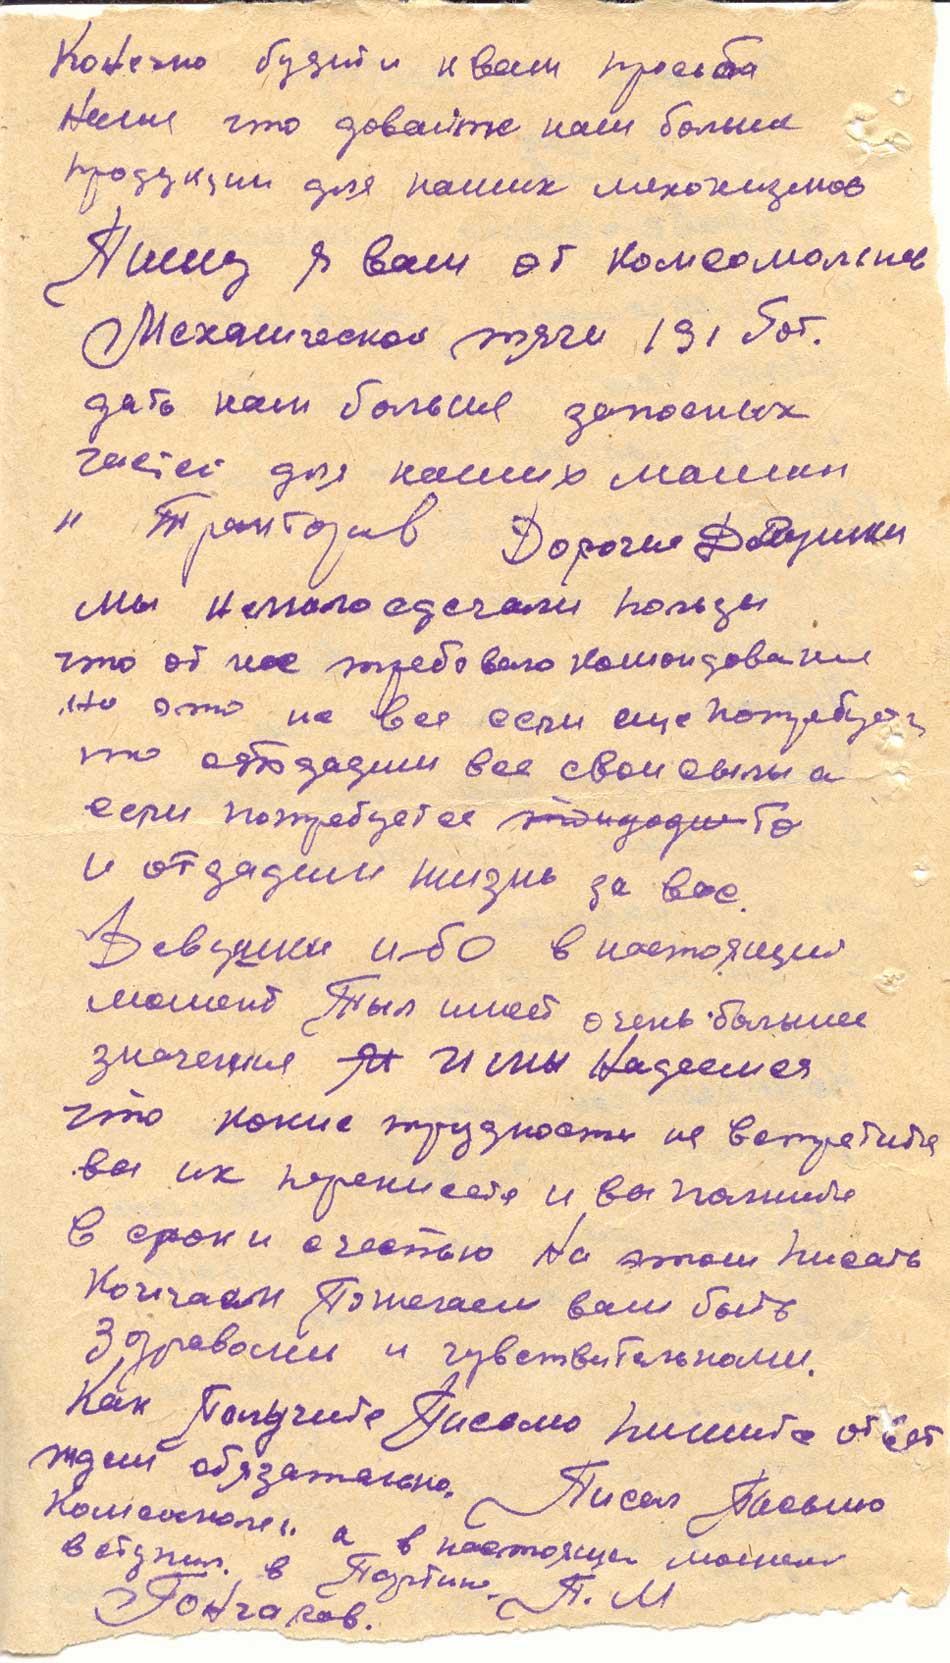 Конечно будит и к вам просьба
Наша что довайте нам больше
продукции для наших механизмов
Пишу я вам от комсомольцев
Механической тяги 191 бат.
дать нам больше запосных
частей для наших машин
и Тракторов Дорогие Девушки
мы немало сделали пользы
что от нас требовало командование
но это не все если еще потребуется
то отдадим все свои силы а
если потребуется то
и отдадим жизнь за вас.
Девушки ибо в настоящий
момент Тыл имеет очень большее
значения и мы Надеемся
что какие трудности не встретите
вы их перенисете и выполните
в срок и счестью На этом писать
Кончаем Пожелаем вам быть
Здравоми и чувствительноми.
Как Получите Писмо пишите ответ
ждем обязательно. Писал Письмо
Комсомолец а в настоящи момент
вступил в Партию.
Гончаров. П. М